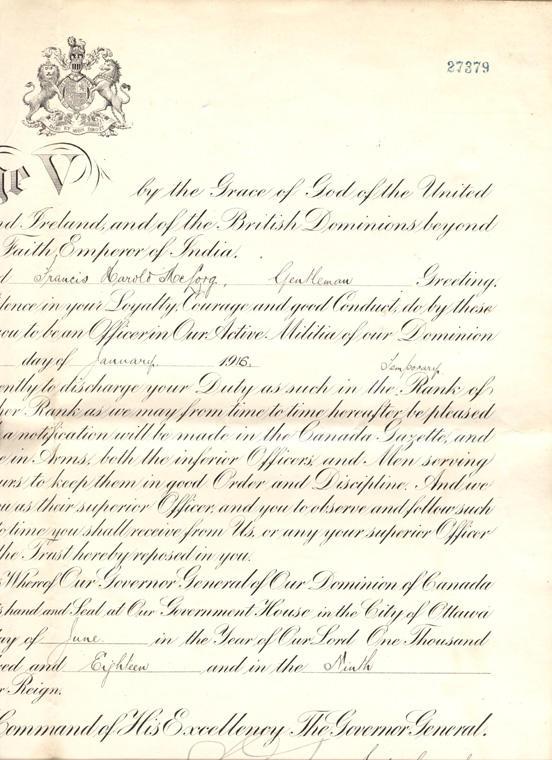 27379
DIEU ET MON DROIT
ge V by the Grace of God of the United
nd Ireland, and of the British Dominions beyond
Faith, Emperor of India.
d Francis Harold McLorg, Gentleman Greeting.
dence in your Loyalty, Courage and good Conduct, do by these
you to be an Officer in Our Active Militia of our Dominion
day of January 1916. Temporary
ently to discharge your Duty as such in the Rank of
her Rank as we may from time to time hereafter be pleased
a notification will be made in the Canada Gazette, and
e in Arms, both the inferior Officers, and Men serving
urs to keep them in good Order and Discipline. And we
ou as their superior Officer, and you to observe and follow such
to time you shall receive from Us, or any your superior Officer
the Trust hereby reposed in you.
s Whereof Our Governor General of Our Dominion of Canada
is hand and Seal at Our Government House, in the City of Ottawa
day of June in the Year of Our Lord One Thousand
red and Eighteen and in the Ninth
r Reign.
Command of His Excellency The Governor General.